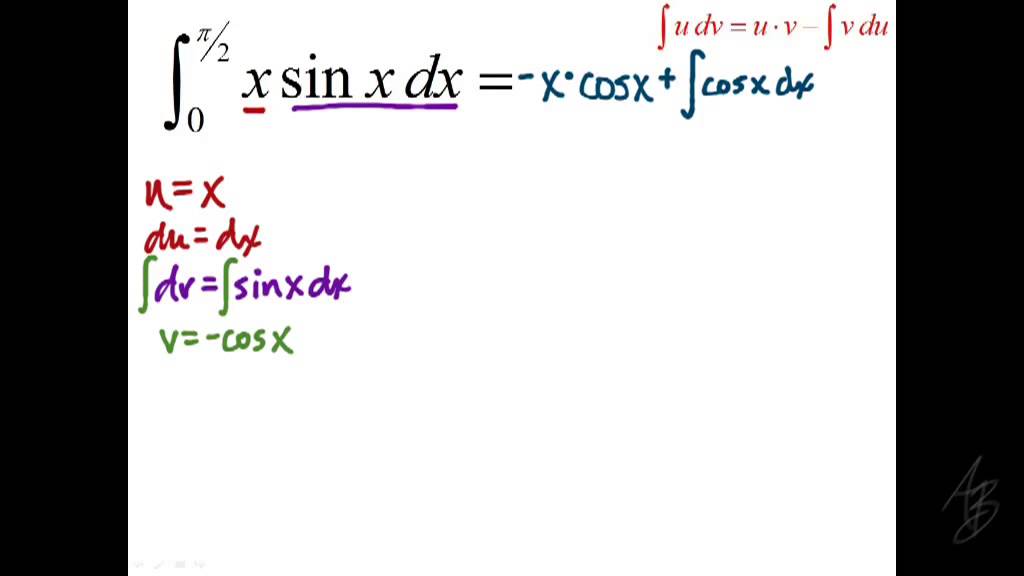 ∫ u dv = u · v − ∫ v du
∫₀^{π/2} x sin x dx = -x · cosx + ∫cosx dx
u = x
du = dx
∫dv = ∫sinx dx
v = -cosx